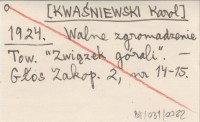 [KWAŚNIEWSKI Karol]
1924. Walne zgromadzenie
Tow. "Związek górali". —
Głos Zakop. 2, nr 14-15.